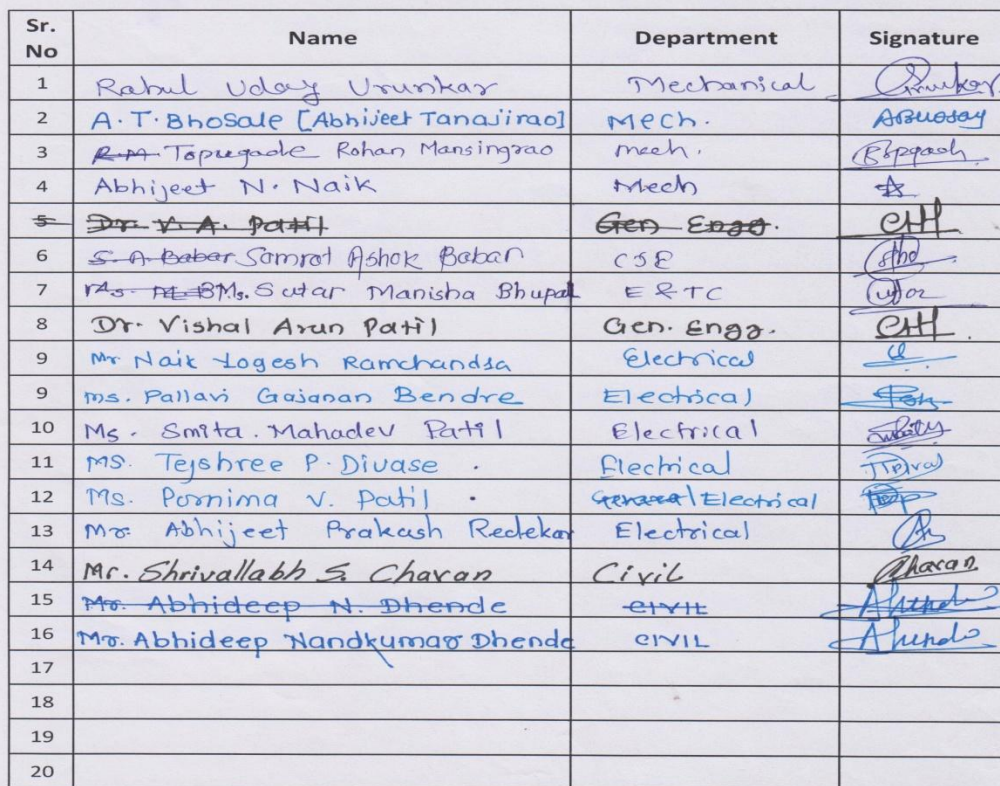 Sr. No Name Department Signature
1 Rahul Uday Urunkar Mechanical
2 A.T. Bhosale [Abhijeet Tanajirao] Mech.
3 R.M Topugade Rohan Mansingrao mech.
4 Abhijeet N. Naik Mech
5 Dr. V. A. Patil Gen Engg.
6 S. A. Babar Samrat Ashok Babar CSE
7 Ms. Sutar Manisha Bhupal E & TC
8 Dr. Vishal Arun Patil Gen. Engg.
9 Mr Naik Yogesh Ramchandra Electrical
9 Ms. Pallavi Gajanan Bendre Electrical
10 Ms. Smita. Mahadev Patil Electrical
11 MS. Tejshree P. Divase . Electrical
12 Ms. Pornima V. Patil . General Electrical
13 Mr. Abhijeet Prakash Redekar Electrical
14 Mr. Shrivallabh S. Chavan Civil Chavan
15 Mr. Abhideep N. Dhende CIVIL
16 Mr. Abhideep Nandkumar Dhende CIVIL
17
18
19
20